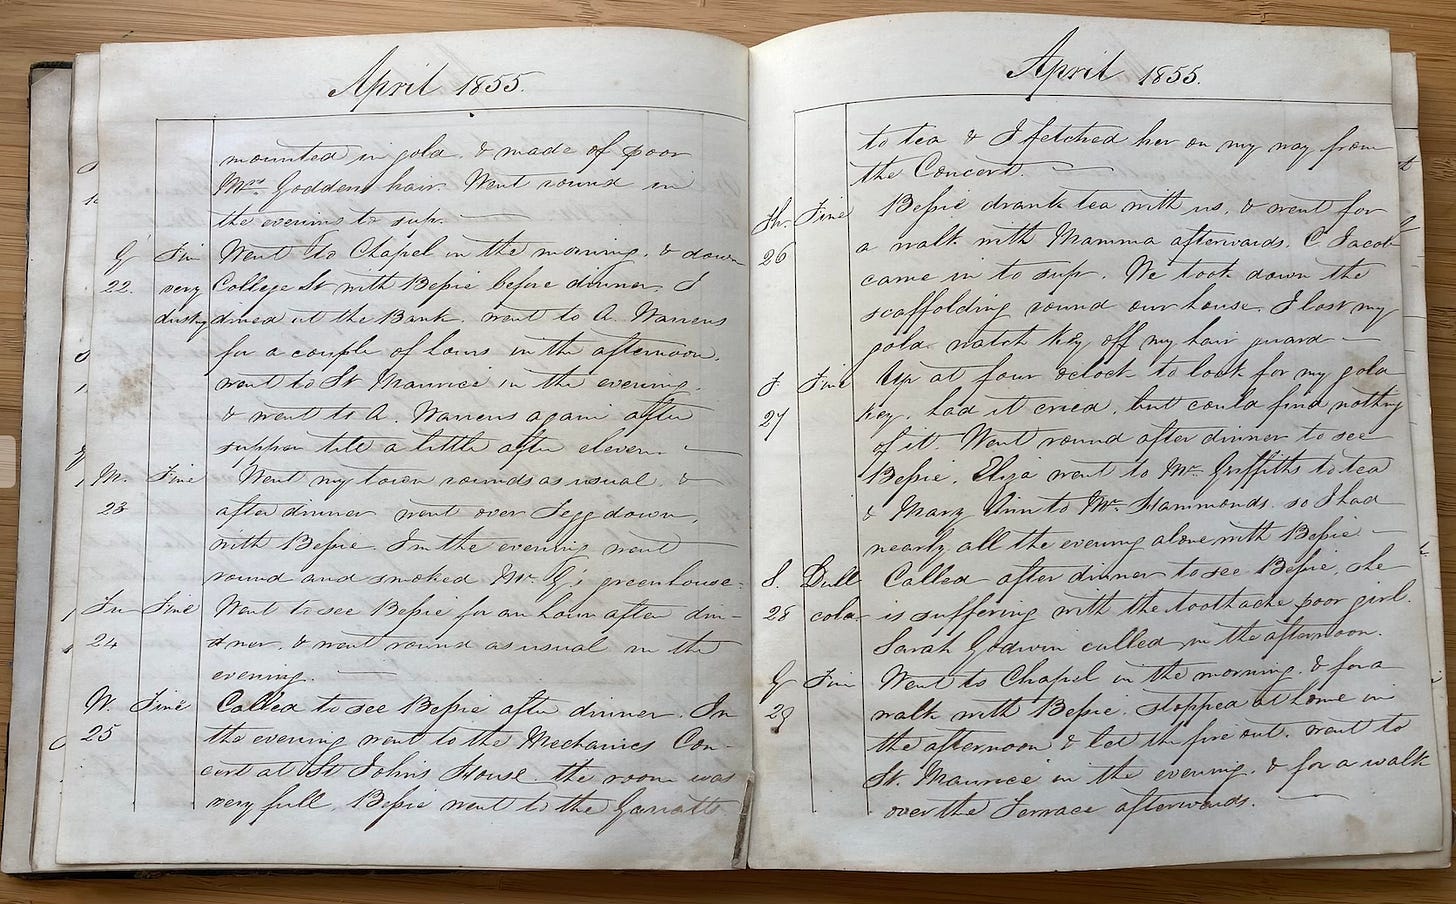 April 1855.
mounted in gold, & made of poor
Mrs. Goddens hair. Went round in
the evening to sup.
Fine Went to Chapel in the morning, & down
22. very College St with Bessie before dinner. I
dusty dined at the Bank, went to A. Warrens
for a couple of hours in the afternoon.
went to St Maurice in the evening.
& went to A. Warrens again after
supper till a little after eleven.
M. Fine Went my town rounds as usual, &
23 after dinner went over Teggdown,
with Bessie. In the evening went
round and smoked Mr G's greenhouse.
Tu Fine Went to see Bessie for an hour after din-
24 ner, & went round as usual in the
evening.
W. Fine Called to see Bessie after dinner. In
25 the evening went to the Mechanics Con-
cert at St Johns House. the room was
very full, Bessie went to the Garratts
April 1855.
to tea & I fetched her on my way from
the Concert.
Th. Fine Bessie drank tea with us, & went for
26 a walk with Mamma afterwards. C. Jacob
came in to sup. We took down the
scaffolding round our house. I lost my
gold watch key off my hair guard
F. Fine Up at four oclock to look for my gold
27 key, had it cried, but could find nothing
of it. Went round after dinner to see
Bessie. Eliza went to Mr. Griffiths to tea
& Mary Ann to Mr. Hammonds, so I had
nearly all the evening alone with Bessie
S. Dull Called after dinner to see Bessie, she
28 cold is suffering with the toothache poor girl.
Sarah Godwin called in the afternoon.
Fine Went to Chapel in the morning, & for a
29 walk with Bessie. stopped at home in
the afternoon & let the fire out. went to
St. Maurice in the evening, & for a walk
over the Terrace afterwards.